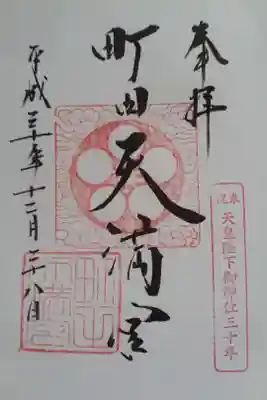 奉拝
町田天満宮
平成三十年十二月二十八日
奉祝
天皇陛下御即位三十年